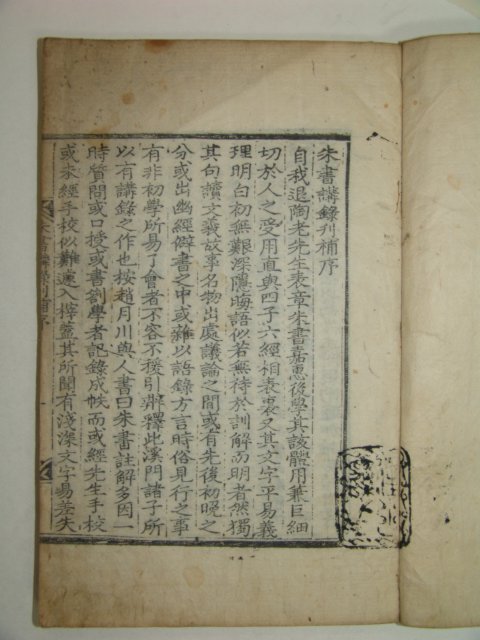 朱書講錄刊補序
自我退陶老先生表章朱書嘉惠後學其該體用兼巨細
切於人之受用直與四子六經相表裏又其文字平易義
理明白初無艱深隱晦語似若無待於訓解而明者然獨
其句讀文義故事名物出處議論之間或有先後初晚之
分或出幽經僻書之中或雜以語錄方言時俗見行之事
有非初學所易了會者不容不援引辨釋此溪門諸子所
以有講錄之作也按趙月川與人書曰朱書註解多因一
時質問或口授或書劄學者記錄成帙而或經先生手校
或未經手校似難遽入梓蓋其所聞有淺深文字易差失